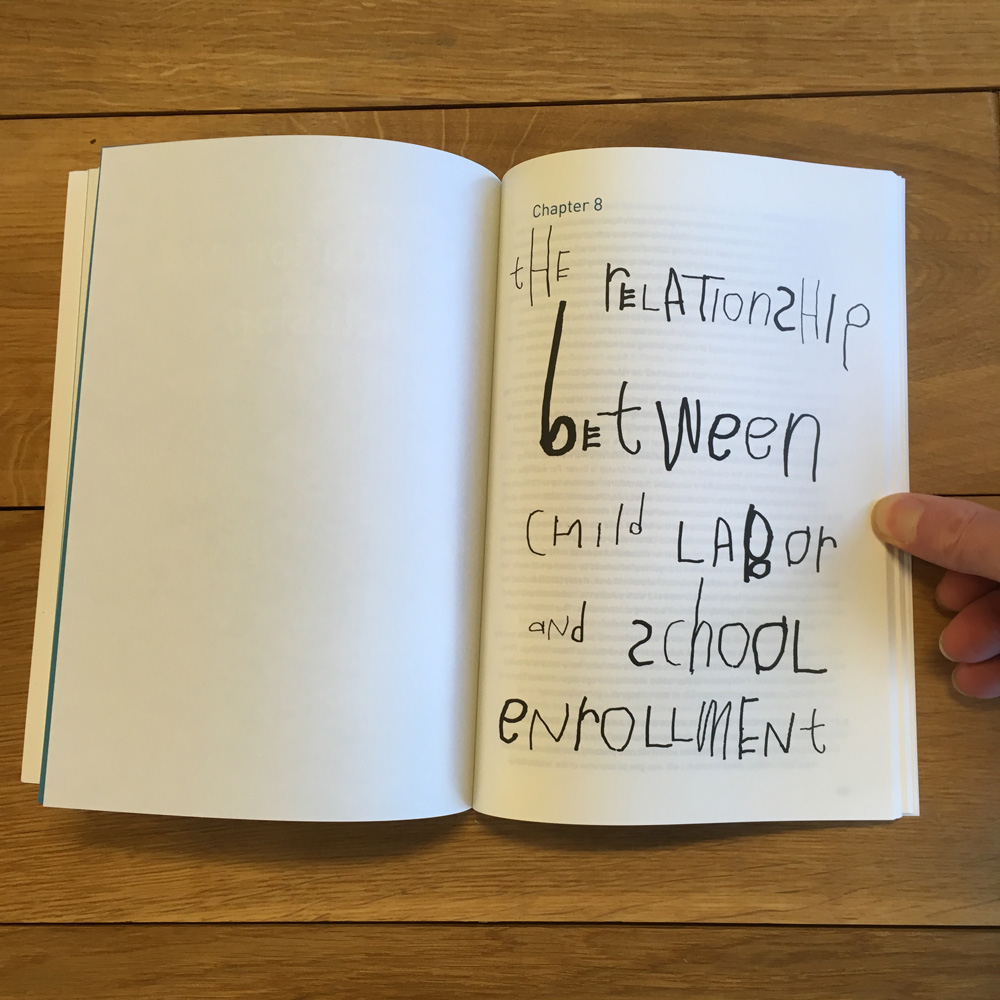 Chapter 8
tHE rELATionSHIp
bEtWeen
CHild LABor
aNd SchoOL
eNrOLLMENt